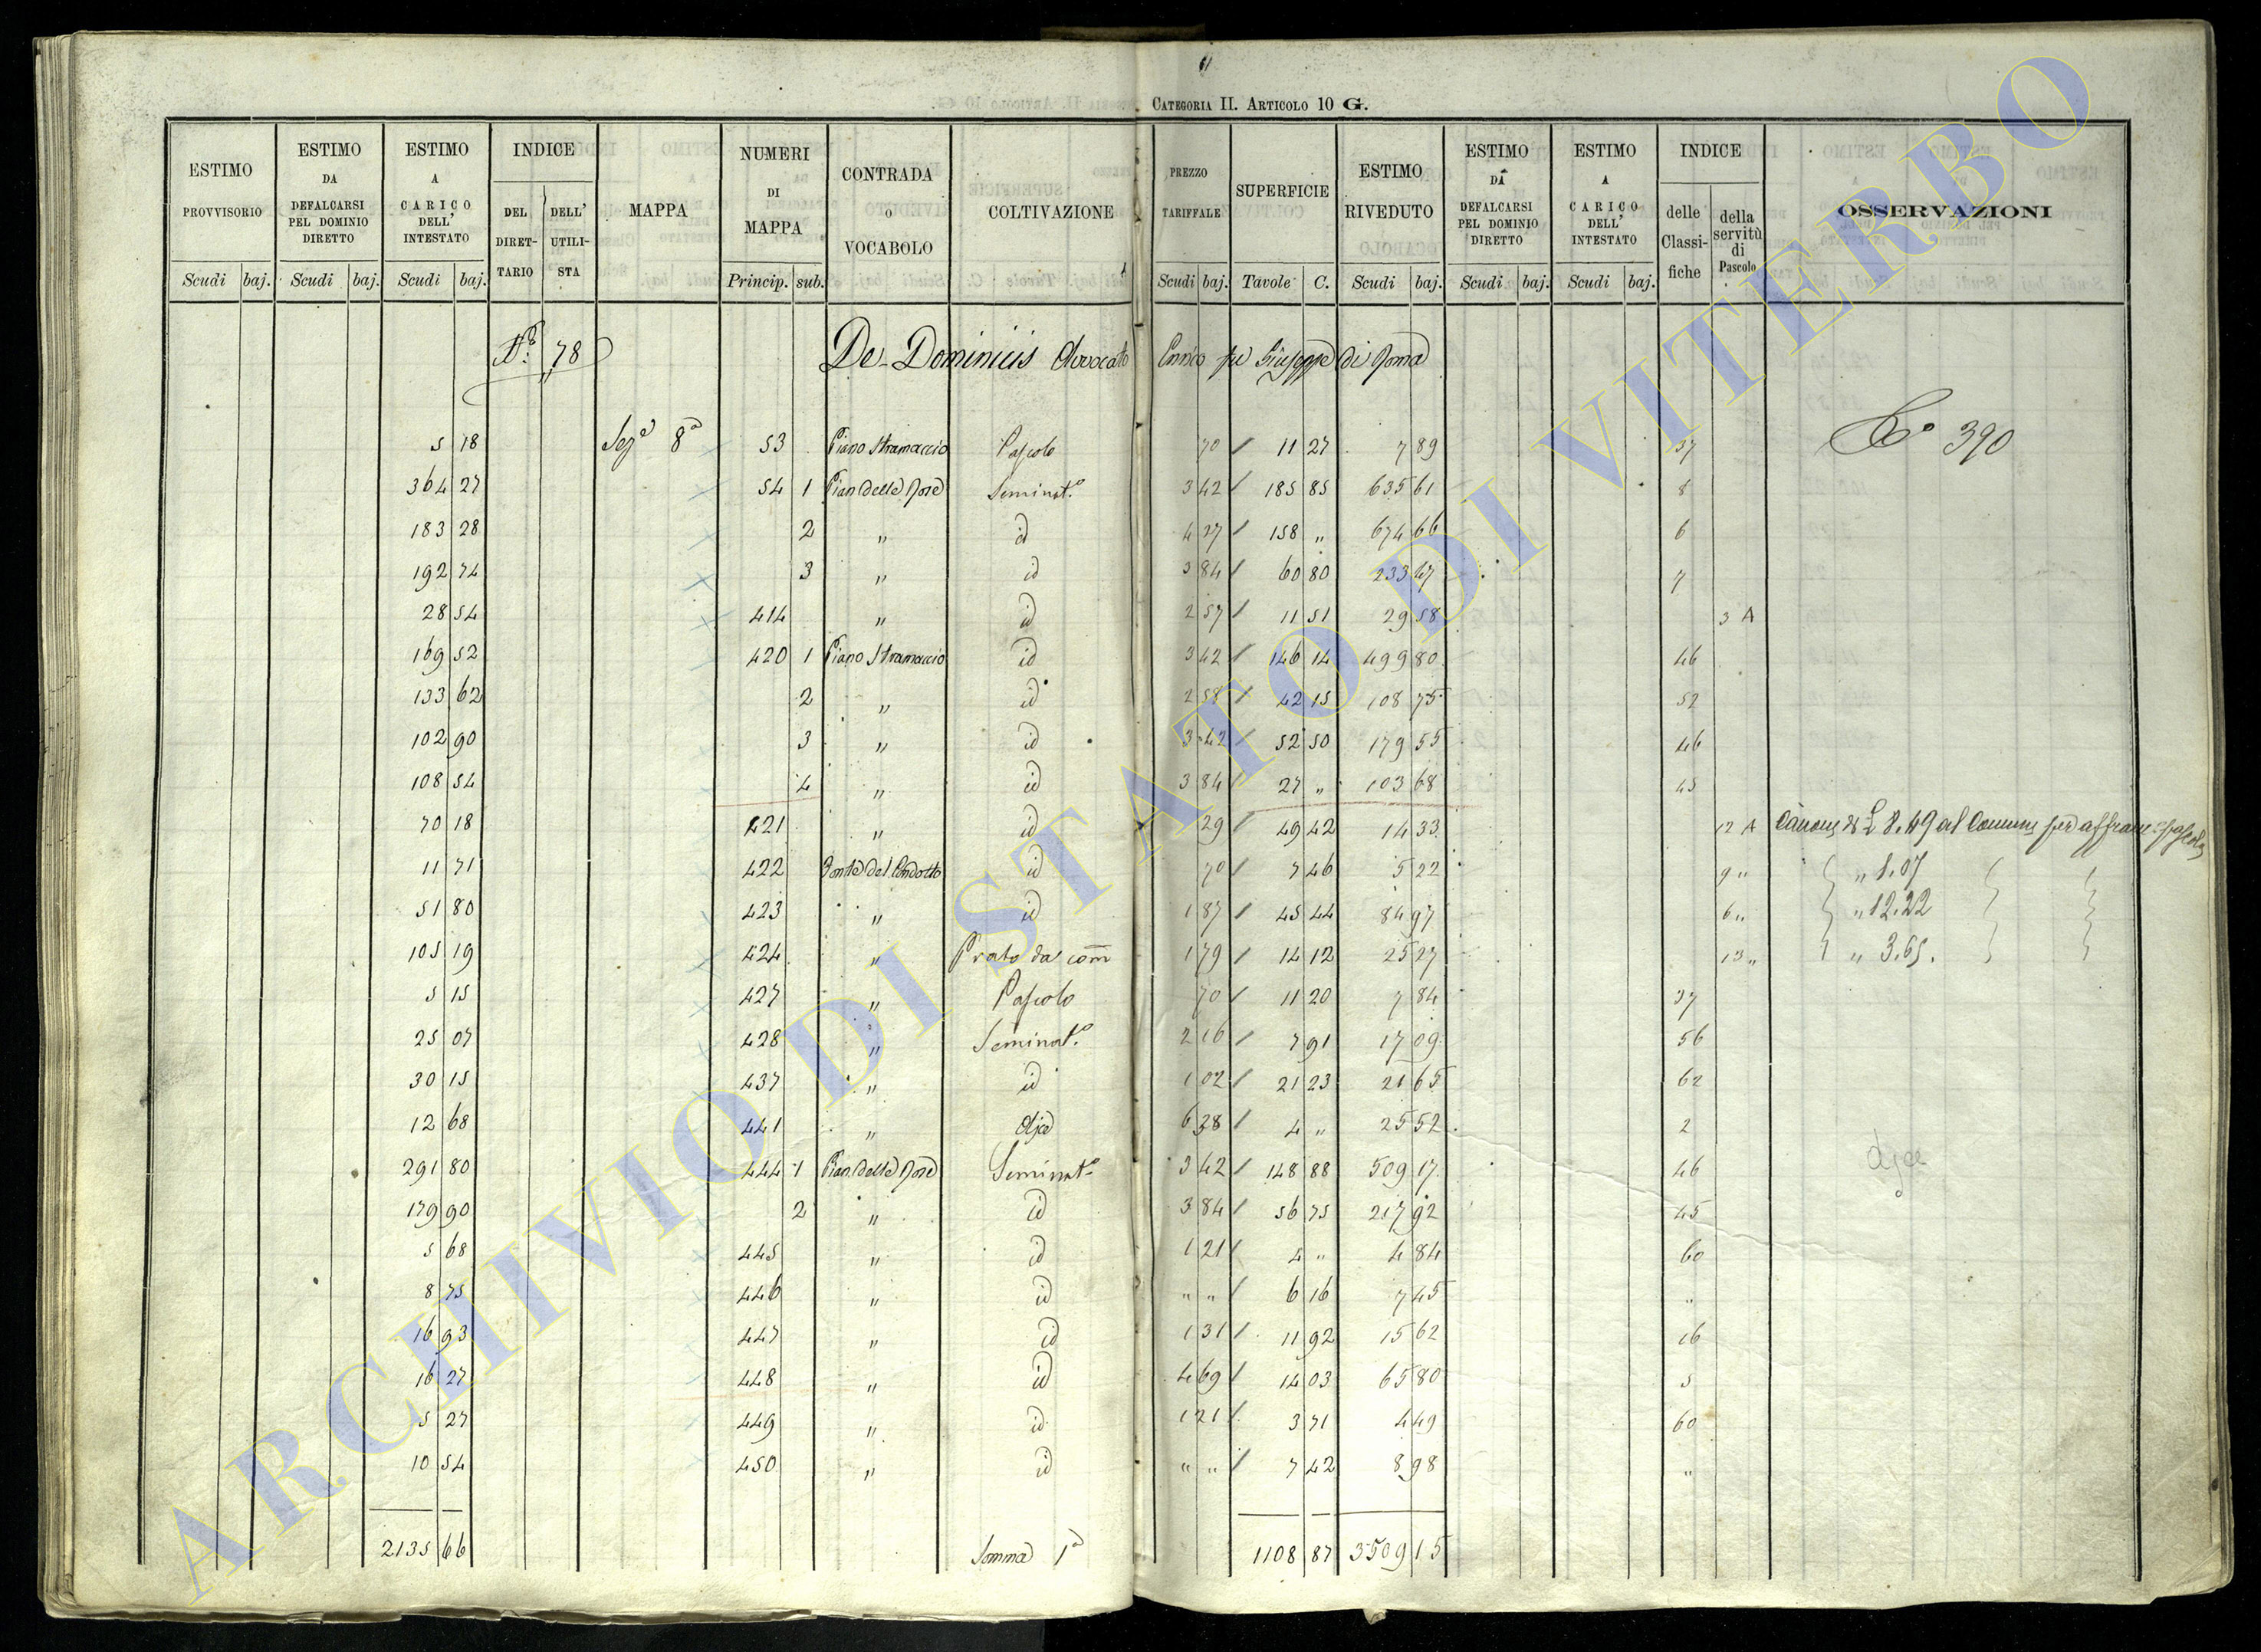 61
CATEGORIA II. ARTICOLO 10 G.
ESTIMO PROVVISORIO Scudi baj.
ESTIMO DA DEFALCARSI PEL DOMINIO DIRETTO Scudi baj.
ESTIMO A CARICO DELL' INTESTATO Scudi baj.
INDICE DEL DIRETTARIO DELL' UTILISTA
MAPPA
NUMERI DI MAPPA Princip. sub.
CONTRADA O VOCABOLO
COLTIVAZIONE
PREZZO TARIFFALE Scudi baj.
SUPERFICIE Tavole C.
ESTIMO RIVEDUTO Scudi baj.
ESTIMO DA DEFALCARSI PEL DOMINIO DIRETTO Scudi baj.
ESTIMO A CARICO DELL' INTESTATO Scudi baj.
INDICE delle Classifiche della servitù di Pascolo
OSSERVAZIONI
N.º 78 De-Dominicis Avvocato Enrico fu Giuseppe di Roma
Cº 390
5 18 Sezª 8ª 53 Piano Stramaccio Pascolo 70 11 27 7 89 37
364 27 54 1 Pian delle Rose Seminatº 3 42 185 85 635 61 8
183 28 2 " id 4 27 158 " 674 66 6
192 74 3 " id 3 84 60 80 233 47 7
28 54 414 " id 2 57 11 51 29 58 3 A
169 52 420 1 Piano Stramaccio id 3 42 146 14 499 80 46
133 62 2 " id 2 58 42 15 108 75 52
102 90 3 " id 3 42 52 50 179 55 46
108 54 4 " id 3 84 27 " 103 68 45
70 18 421 " id 29 49 42 14 33 12 A Canone di £ 8.49 al Comune per affranc. pascolo
11 71 422 Fonte del Condotto id 70 7 46 5 22 9 " " 1.07
51 80 423 " id 1 87 45 44 84 97 6 " " 12.22
105 19 424 " Prato da com 1 79 14 12 25 27 13 " " 3.65.
5 15 427 " Pascolo 70 11 20 7 84 37
25 07 428 " Seminatº 2 16 7 91 17 09 56
30 15 437 " id 1 02 21 23 21 65 62
12 68 441 " Aja 6 38 4 " 25 52 2
291 80 444 1 Pian delle Rose Seminatº 3 42 148 88 509 17 46 Aja
179 90 2 " id 3 84 56 75 217 92 45
5 68 445 " id 1 21 4 " 4 84 60
8 75 446 " id " " 6 16 7 45 "
16 93 447 " id 1 31 11 92 15 62 16
16 27 448 " id 4 69 14 03 65 80 5
5 27 449 " id 1 21 3 71 4 49 60
10 54 450 " id " " 7 42 8 98 "
2135 66 Somma 1ª 1108 87 3509 15
ARCHIVIO DI STATO DI VITERBO